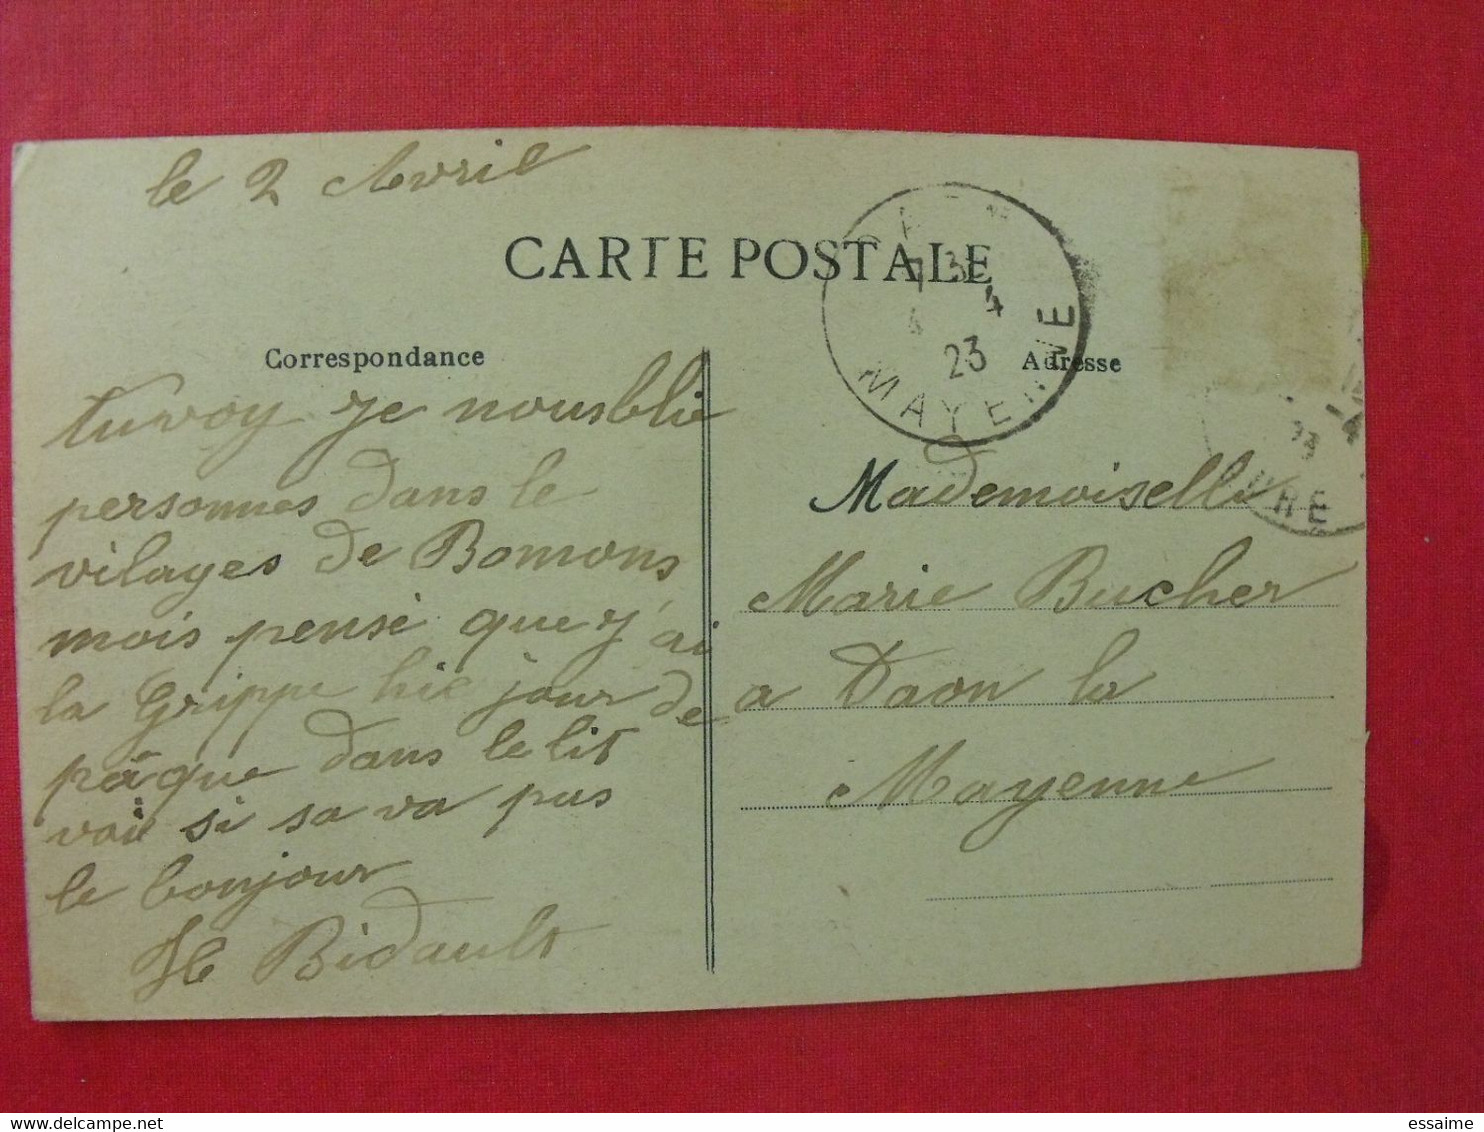 le 2 Avril
CARTE POSTALE
Correspondance
tuvoy je nousblie
personnes dans le
vilages de Bomons
mois pensé que j'ai
la Grippe hie jour de
pâque dans le lit
voie si sa va pas
le bonjour
H Bidault
7 3
4 4
23
MAYENNE
Adresse
Mademoiselle
Marie Bucher
a Daon la
Mayenne
-4
23
essaime
www.delcampe.net